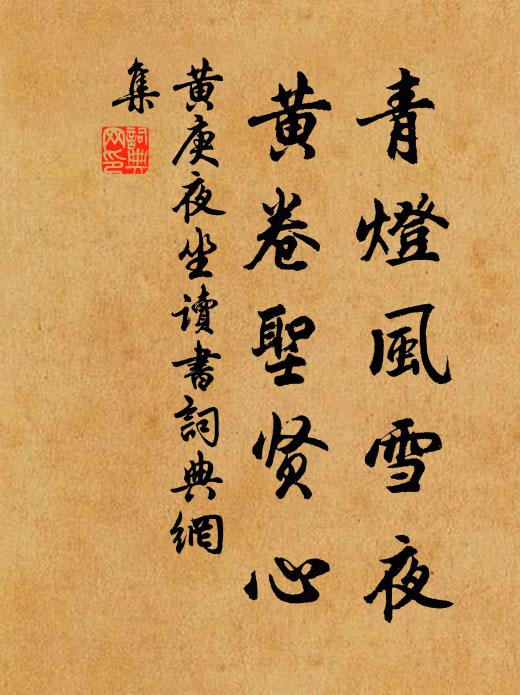 青燈風雪夜
黃卷聖贤心
黄庚夜坐讀書詞典網
集
詞典
网印